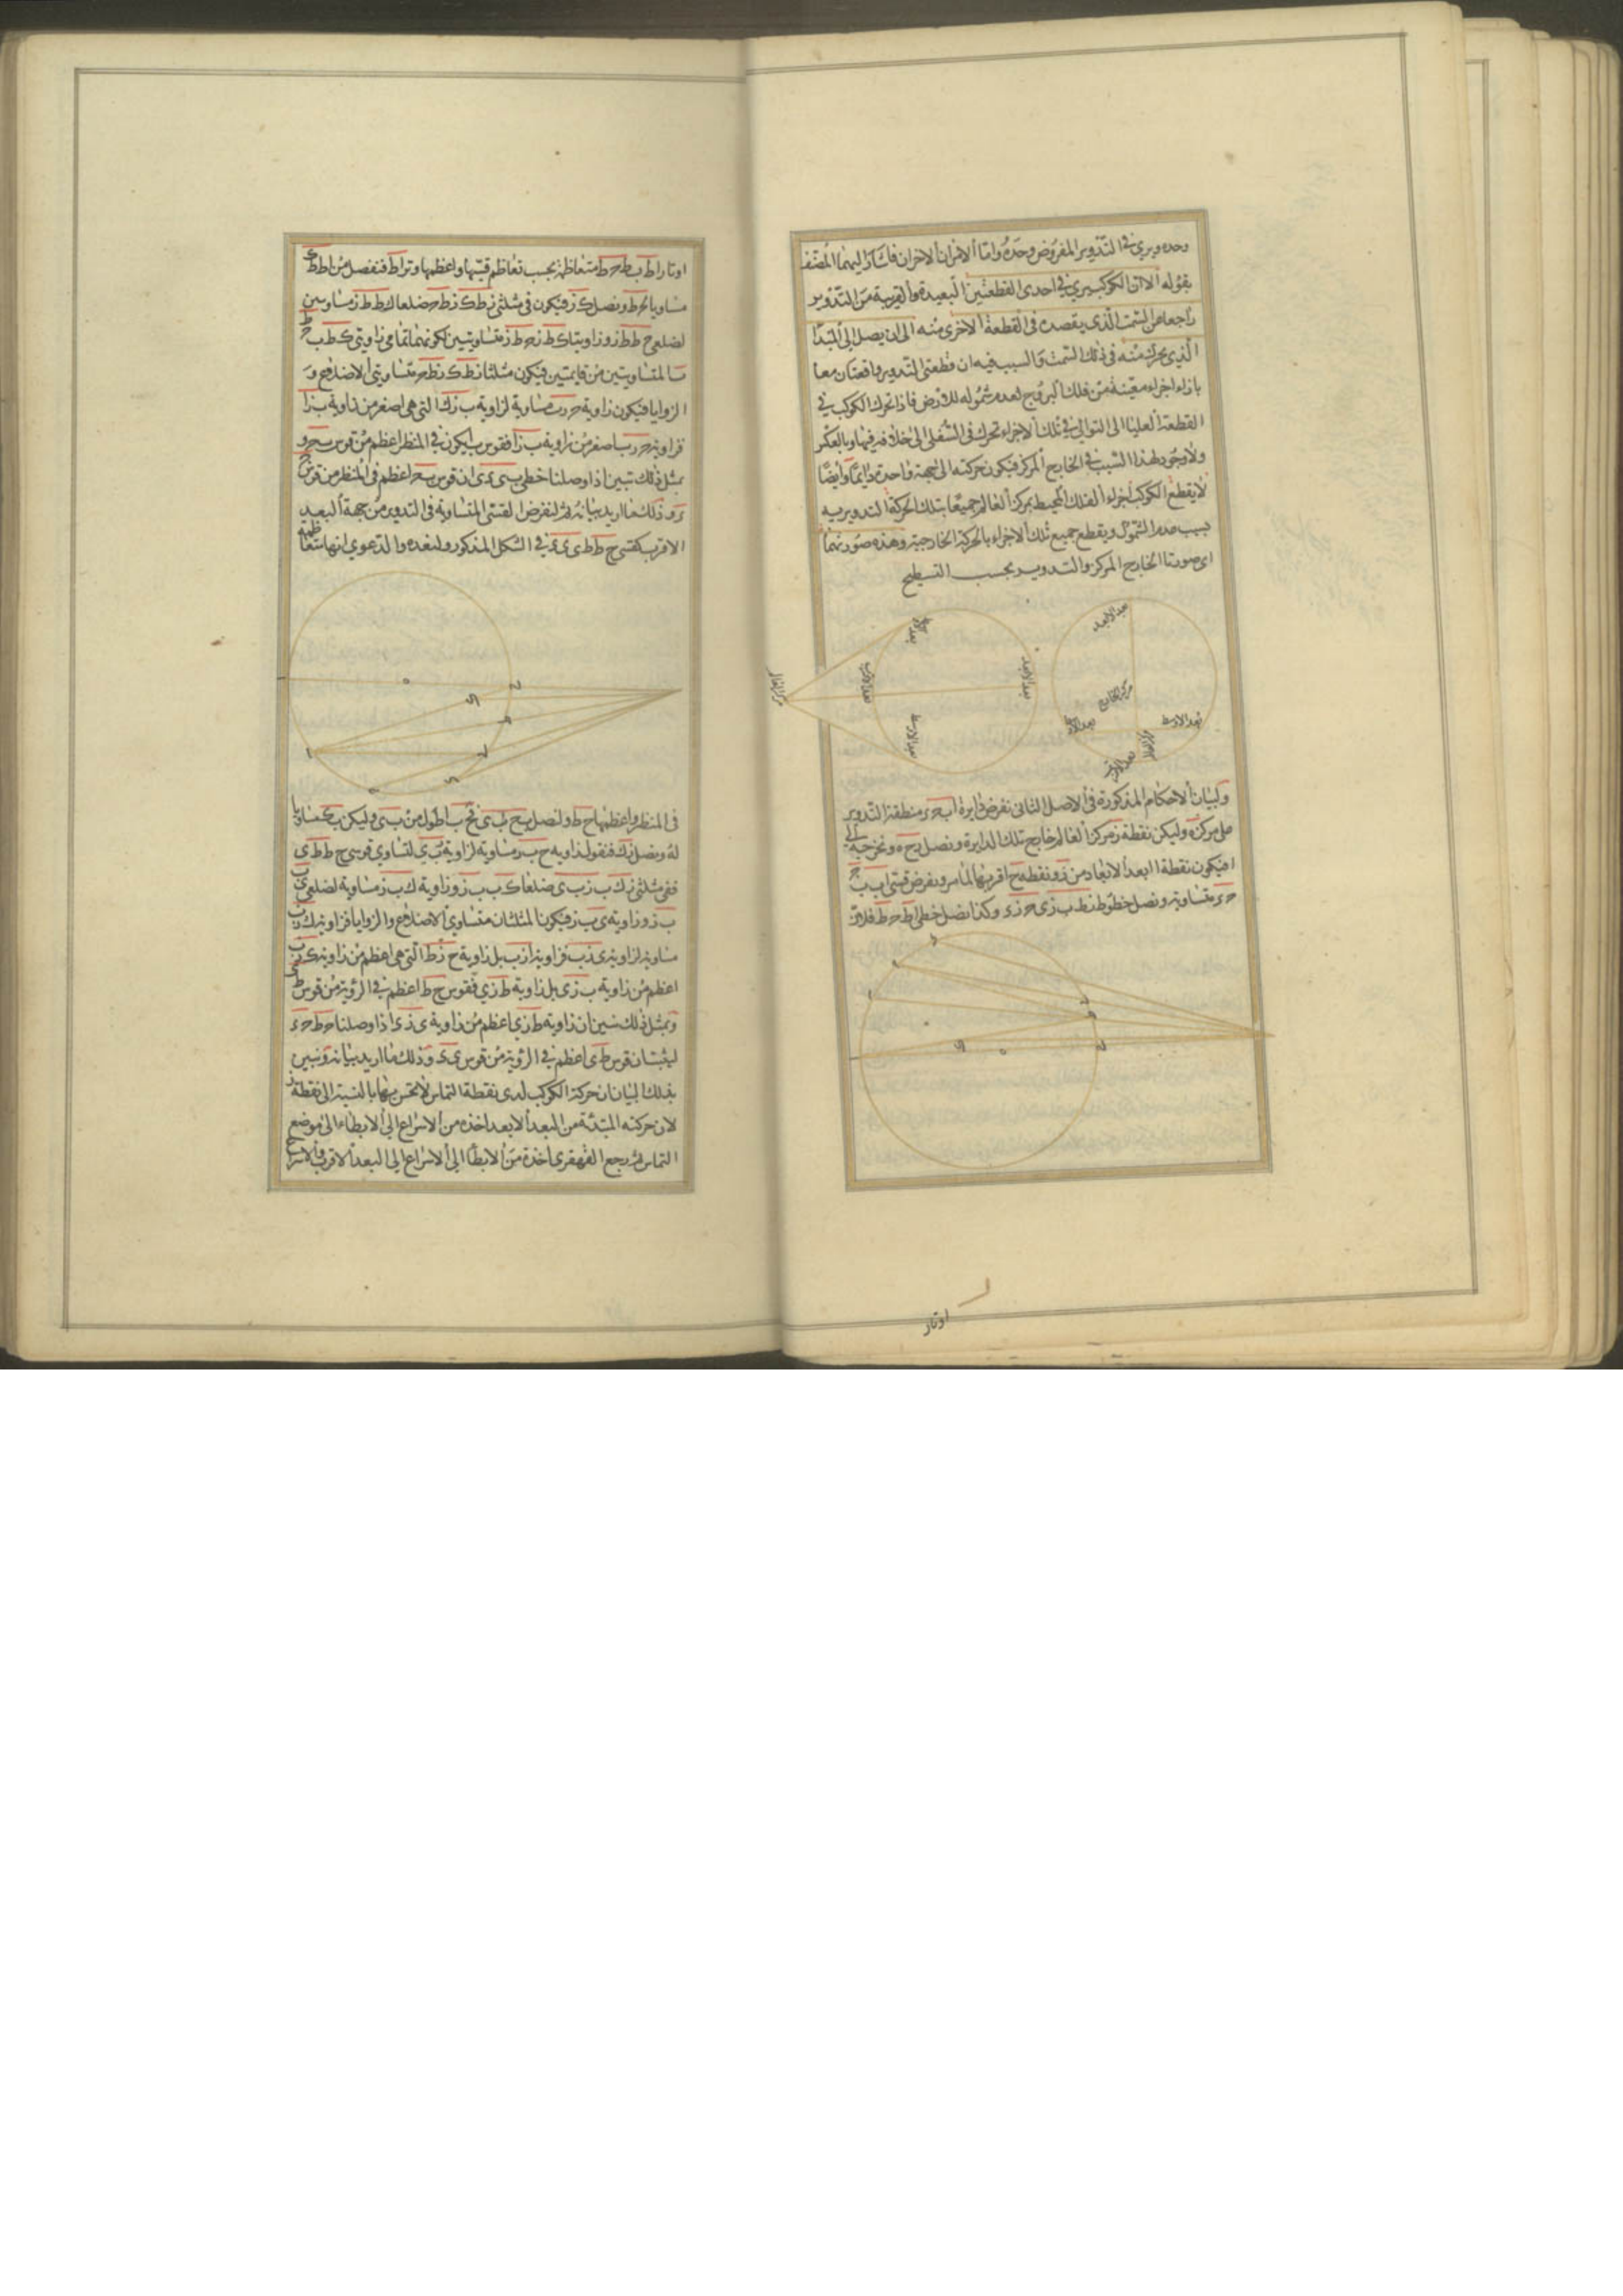 وحده ويرى في التدوير المفروض وحده واما الامران الاخران فاشار اليهما المصنف
بقوله الا ان الكوكب يرى في احدى القطعتين البعيدة والقريبة من التدوير
راجعا عن السمت الذى يقصده فى القطعة الاخرى منه الى ان يصل الى المبدا
الذى يحرك منه فى ذلك السمت والسبب فيه ان قطعتى التدوير واقعتان معا
بازاء اجزاء معينة من فلك البروج لعدم شموله للارض فاذا تحرك الكوكب في
القطعة العليا الى التوالى في تلك الاجزاء تحرك فى السفلى الى خلافه فيها وبالعكس
ولا وجود لهذا السبب في الخارج المركز فيكون حركته الى جهة واحدة دايما وايضا
لا يقطع الكوكب اجزاء الفلك المحيط بمركز العالم جميعا بتلك الحركة التدويرية
بسبب عدم الشمول ويقطع جميع تلك الاجزاء بالحركة الخارجية وهذه صورتهما
اى صورتا الخارج المركز والتدوير بحسب التسطيح
بعد الابعد
مركز الخارج
بعد الاوسط
بعد الاوسط
مركز العالم
بعد الاقرب
بعد الابعد
بعد الاوسط
بعد الاقرب
بعد الاوسط
مركز العالم
ولبيان الاحكام المذكورة فى الاصل الثانى نفرض دايرة ا ب ح د منطقة التدوير
على مركز ه وليكن نقطة ز مركز العالم خارج تلك الدايرة ونصل زح ه ونخرجه الى
ا فيكون نقطة ا ابعد الابعاد من ز ونقطة ح اقربها لما مر ونفرض قسى ا ب ب ح
ح د متساوية ونصل خطوط زط ب زى ح زد وكذا نصل خطى اط ح ط فلان
اوتار
اوتار اط ب ط ح ط متعاظمة بحسب تعاظم قسيها واعظمها وتر اط فنفصل من اط ط ك
مساويا لح ط ونصل ك ز فيكون فى مثلثى زط ك زط ح ضلعا ك ط ط ز مساويين
لضلعى ح ط ط ز وزاويتا ك ط ز ح ط ز متساويتين لكونهما تمامى زاويتى ك ط ب ح ط
المتساويتين من قايمتين فيكون مثلثا زط ك زط ح متساويى الاضلاع و
الزوايا فيكون زاوية ح ز ب مساوية لزاوية ب زك التى هى اصغر من زاوية ب زا
فزاوية ح ز ب اصغر من زاوية ب زا فقوس ب ا يكون في المنظر اعظم من قوس ب ح و
بمثل ذلك تبين اذا وصلنا خطى ب ى د ى ان قوس ب ح اعظم فى المنظر من قوس ح
د وذلك ما اريد بيانه ثم لنفرض القسى المتساوية فى التدوير من جهة البعد
الاقرب كقسى ح ط ط ى ى د في الشكل المذكور ولنعده والدعوى انها متعاظمة
فى المنظر واعظمها ح ط ولنصل ب ح ب ى فح ب اطول من ب ى وليكن ب ك مساويا
له ونصل زك فنقول زاوية ح ب ز مساوية لزاوية ز ب ى لتساوى قوسى ح ط ط ى
ففى مثلثى زك ب زب ى ضلعا ك ب ب ز وزاوية ك ب ز مساوية لضلعى ى ب
ب ز وزاوية ى ب ز فيكون المثلثان متساوى الاضلاع والزوايا فزاوية ك زب
مساوية لزاوية ى زب فزاوية ا زب بل زاوية ح زط التى هى اعظم من زاوية ك زب
اعظم من زاوية ب زى بل زاوية ط زى فقوس ح ط اعظم في الرؤية من قوس ط ى
وبمثل ذلك تبين ان زاوية ط زى اعظم من زاوية ى زد اذا وصلنا ح ط ح د
ليثبت ان قوس ط ى اعظم في الرؤية من قوس ى د وذلك ما اريد بيانه وتبين
بذلك البيان ان حركة الكوكب لدى نقطة التماس لا تحس بها بالنسبة الى نقطة ز
لان حركته المبتدئة من البعد الابعد اخذة من الاسراع الى الابطاء الى موضع
التماس ثم يرجع القهقرى اخذة من الابطاء الى الاسراع الى البعد الاقرب والاسراع